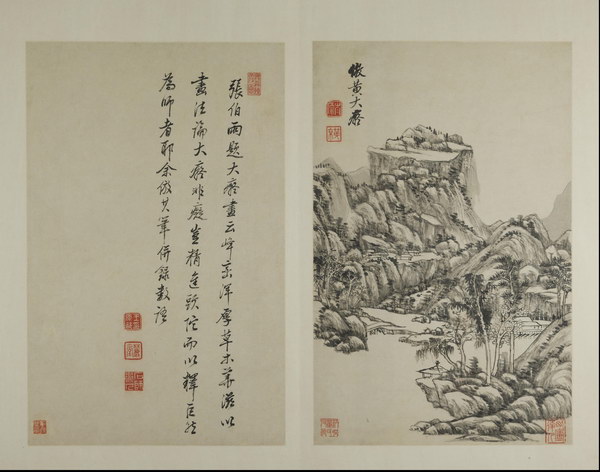 張伯雨題大癡畫云峰巒渾厚草木華滋以
畫法論大癡非癡豈精進頭陀而以釋巨然
為師者耶余倣其筆併錄數語
倣黃大癡